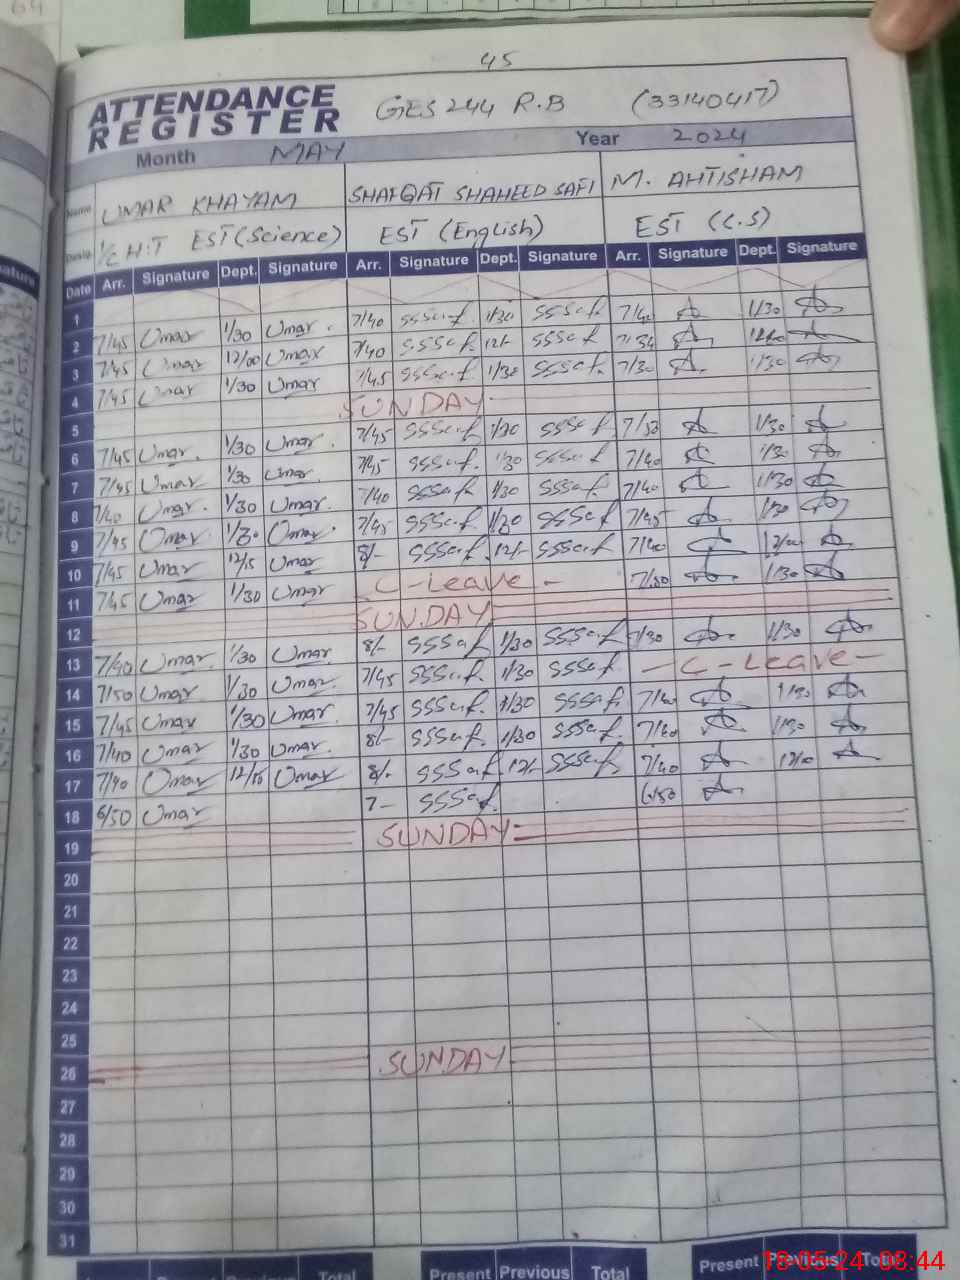 45
ATTENDANCE REGISTER GES 244 R.B (33140417)
Month MAY Year 2024
Name UMAR KHAYAM SHAFQAT SHAHEED SAFI M. AHTISHAM
Desig. I/C H.T EST (Science) EST (English) EST (C.S)
Date Arr. Signature Dept. Signature Arr. Signature Dept. Signature Arr. Signature Dept. Signature
1
2 7/45 Umar 1/30 Umar. 7/40 SSSaf. 1/30 SSSaf 1/30
3 7/45 Umar 12/00 Umar 7/40 SSSaf. 12/- SSSaf
4 7/45 Umar 1/30 Umar 7/45 SSSaf. 1/30 SSSaf. 7/30 1/30
5 SUNDAY
6 7/45 Umar. 1/30 Umar. 7/45 SSSaf 1/30 SSSaf 1/30
7 7/45 Umar 1/30 Umar. 7/45 SSSaf. 1/30 SSSaf 7/40 1/30
8 7/40 Umar. 1/30 Umar 7/40 SSSaf. 1/30 SSSaf. 7/40 1/30
9 7/45 Umar 1/30 Umar. 7/45 SSSaf. 1/30 SSSaf 7/45 1/30
10 7/45 Umar 12/15 Umar 8/- SSSaf. 12/- SSSaf 7/40
11 7/45 Umar 1/30 Umar C-Leave - 1/30
12 SUNDAY
13 7/40 Umar. 1/30 Umar 8/- SSSaf 1/30 SSSaf 7/30 1/30
14 7/50 Umar 1/30 Umar. 7/45 SSSaf. 1/30 SSSaf. - C - Leave -
15 7/45 Umar 1/30 Umar. 7/45 SSSaf. 1/30 SSSaf. 7/40 1/30
16 7/40 Umar 1/30 Umar. 8/- SSSaf. 1/30 SSSaf. 7/40 1/30
17 7/40 Umar Umar 8/- SSSaf 12/- SSSaf 7/40
18 6/50 Umar 7- SSSaf. 6/50
19 SUNDAY
20
21
22
23
24
25
26 SUNDAY
27
28
29
30
31
Total Present Previous Total Present Previous Total
18-05-24 08:44